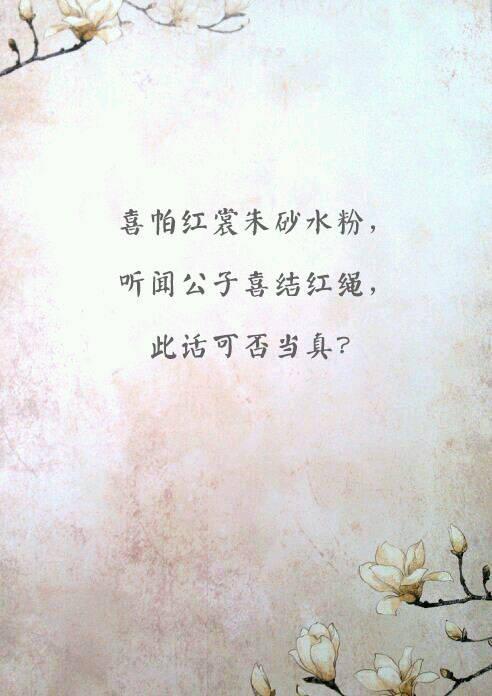 喜帕红裳朱砂水粉，
听闻公子喜结红绳，
此话可否当真？